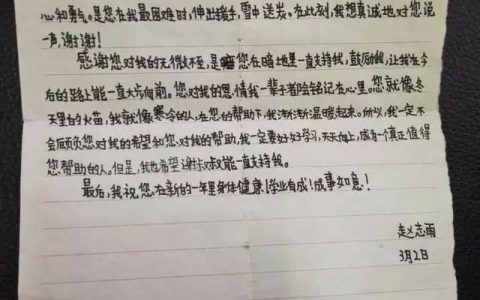 心和勇气。是您在我最困难时,伸出援手,雪中送炭。在此刻,我想真诚地对您说
一声,谢谢!
感谢您对我的无微不至,是您在暗地里一直支持我,鼓励我,让我在今
后的路上能一直大步向前。您对我的恩情我一辈子都会铭记在心里。您就像冬
天里的火苗,我就像寒冷的人,在您的帮助下,我渐渐温暖起来。所以,我一定不
会辜负您对我的希望和您对我的帮助,我一定要好好学习,天天向上,成为一个真正值得
您帮助的人。但是,我也希望谢叔叔能一直支持我。
最后,我祝您在新的一年里身体健康!学业有成!成事如意!
赵志雨
3月2日